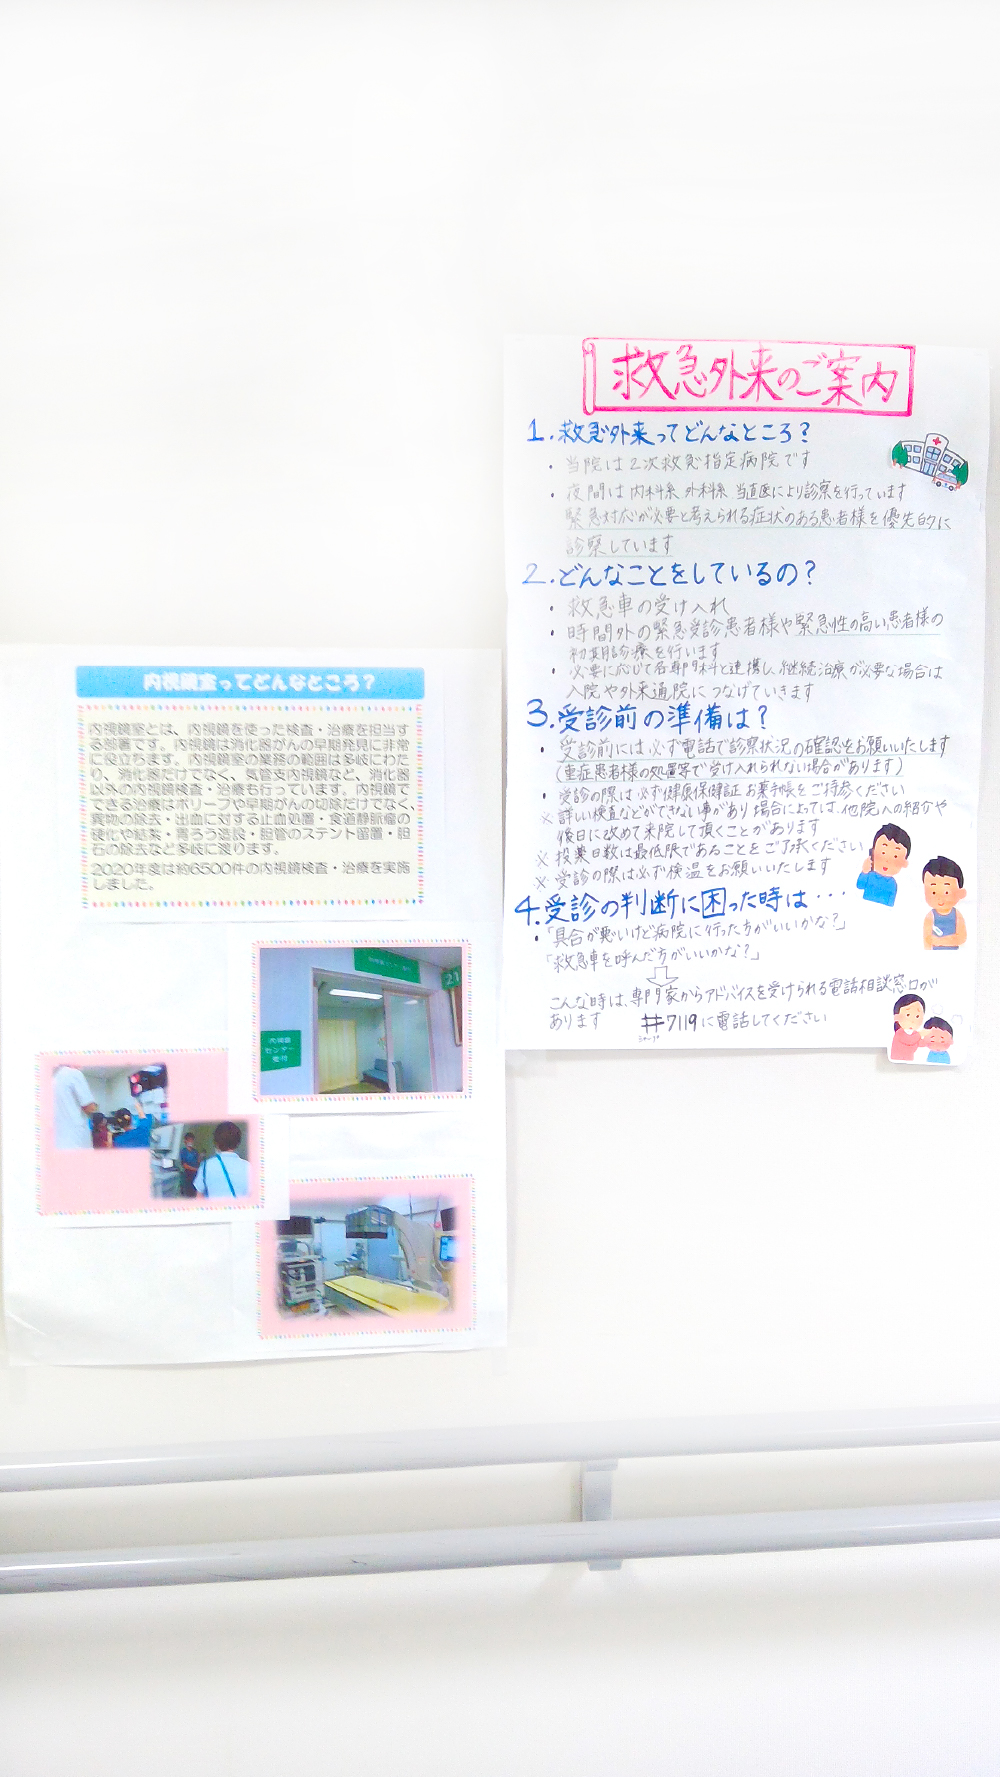 内視鏡室ってどんなところ？
内視鏡室とは、内視鏡を使った検査・治療を担当す
る部署です。内視鏡は消化器がんの早期発見に非常
に役立ちます。内視鏡室の業務の範囲は多岐にわた
り、消化器だけでなく、気管支内視鏡など、消化器
以外の内視鏡検査・治療も行っています。内視鏡で
できる治療はポリープや早期がんの切除だけでなく、
異物の除去・出血に対する止血処置・食道静脈瘤の
硬化や結紮・胃ろう造設・胆管のステント留置・胆
石の除去など多岐に渡ります。
2020年度は約6500件の内視鏡検査・治療を実施
しました。
21
内視鏡
センター
受付
救急外来のご案内
1.救急外来ってどんなところ？
・当院は2次救急指定病院です
・夜間は内科系 外科系 当直医により診察を行っています
緊急対応が必要と考えられる症状のある患者様を優先的に
診察しています
2.どんなことをしているの？
・救急車の受け入れ
・時間外の緊急受診患者様や緊急性の高い患者様の
初期診療を行います
・必要に応じて各専門科と連携し、継続治療が必要な場合は
入院や外来通院につなげていきます
3.受診前の準備は？
・受診前には必ず電話で診察状況の確認をお願いいたします
(重症患者様の処置等で受け入れられない場合があります)
・受診の際は必ず健康保険証 お薬手帳をご持参ください
※詳しい検査などができない事があり場合によっては、他院への紹介や
後日に改めて来院して頂くことがあります
※投薬日数は最低限であることをご了承ください
※受診の際は必ず検温をお願いいたします
4.受診の判断に困った時は・・・
・「具合が悪いけど病院に行った方がいいかな？」
「救急車を呼んだ方がいいかな？」
こんな時は、専門家からアドバイスを受けられる電話相談窓口が
あります #7119に電話してください
シャープ